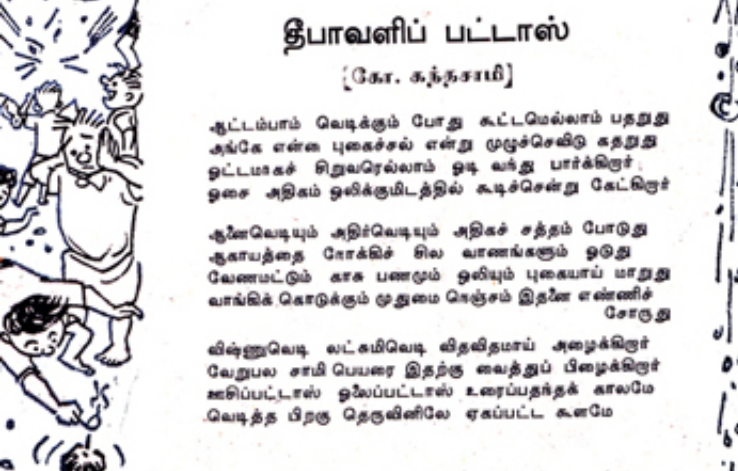 தீபாவளிப் பட்டாஸ்
[கோ. கந்தசாமி]
ஆட்டம்பாம் வெடிக்கும் போது கூட்டமெல்லாம் பதறுது
அங்கே என்ன புகைச்சல் என்று முழுச்செவிடு கதறுது
ஓட்டமாகச் சிறுவரெல்லாம் ஓடி வந்து பார்க்கிறார்
ஓசை அதிகம் ஒலிக்குமிடத்தில் கூடிச்சென்று கேட்கிறார்
ஆனைவெடியும் அதிர்வெடியும் அதிகச் சத்தம் போடுது
ஆகாயத்தை நோக்கிச் சில வாணங்களும் ஓடுது
வேணமட்டும் காசு பணமும் ஒலியும் புகையாய் மாறுது
வாங்கிக் கொடுக்கும் முதுமை நெஞ்சம் இதனை எண்ணிச்
சோருது
விஷ்ணுவெடி லட்சுமிவெடி விதவிதமாய் அழைக்கிறார்
வேறுபல சாமி பெயரை இதற்கு வைத்துப் பிழைக்கிறார்
ஊசிப்பட்டாஸ் ஓலைப்பட்டாஸ் உரைப்பதந்தக் காலமே
வெடித்த பிறகு தெருவினிலே ஏகப்பட்ட கூளமே